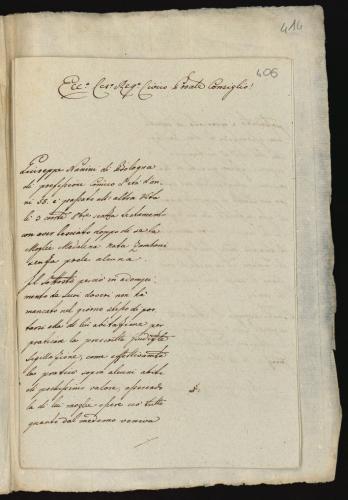 414
406
Ecc.ª Ces.ª Reg.ª Civico Provle Consiglio!
Giuseppe Nanini di Bologna
di professione Comico d'età d'an-
ni 55. è passato all'altra Vita
li 3 corte senza testamento
con aver lasciato doppo di se la
Moglie Madalena nata
senza prole alcuna.
Il Sottosto perciò in adempi-
mento de suoi doveri non hà
mancato nel giorno stesso di por-
tarsi alla di lui abitazione per
praticar la prescritta
Sigilazione, come effettivamte
hà praticò sopra alcuni abiti
di pochissimo valore, asserendo
la di lui moglie essere ciò tutto
quanto dal medemo veniva